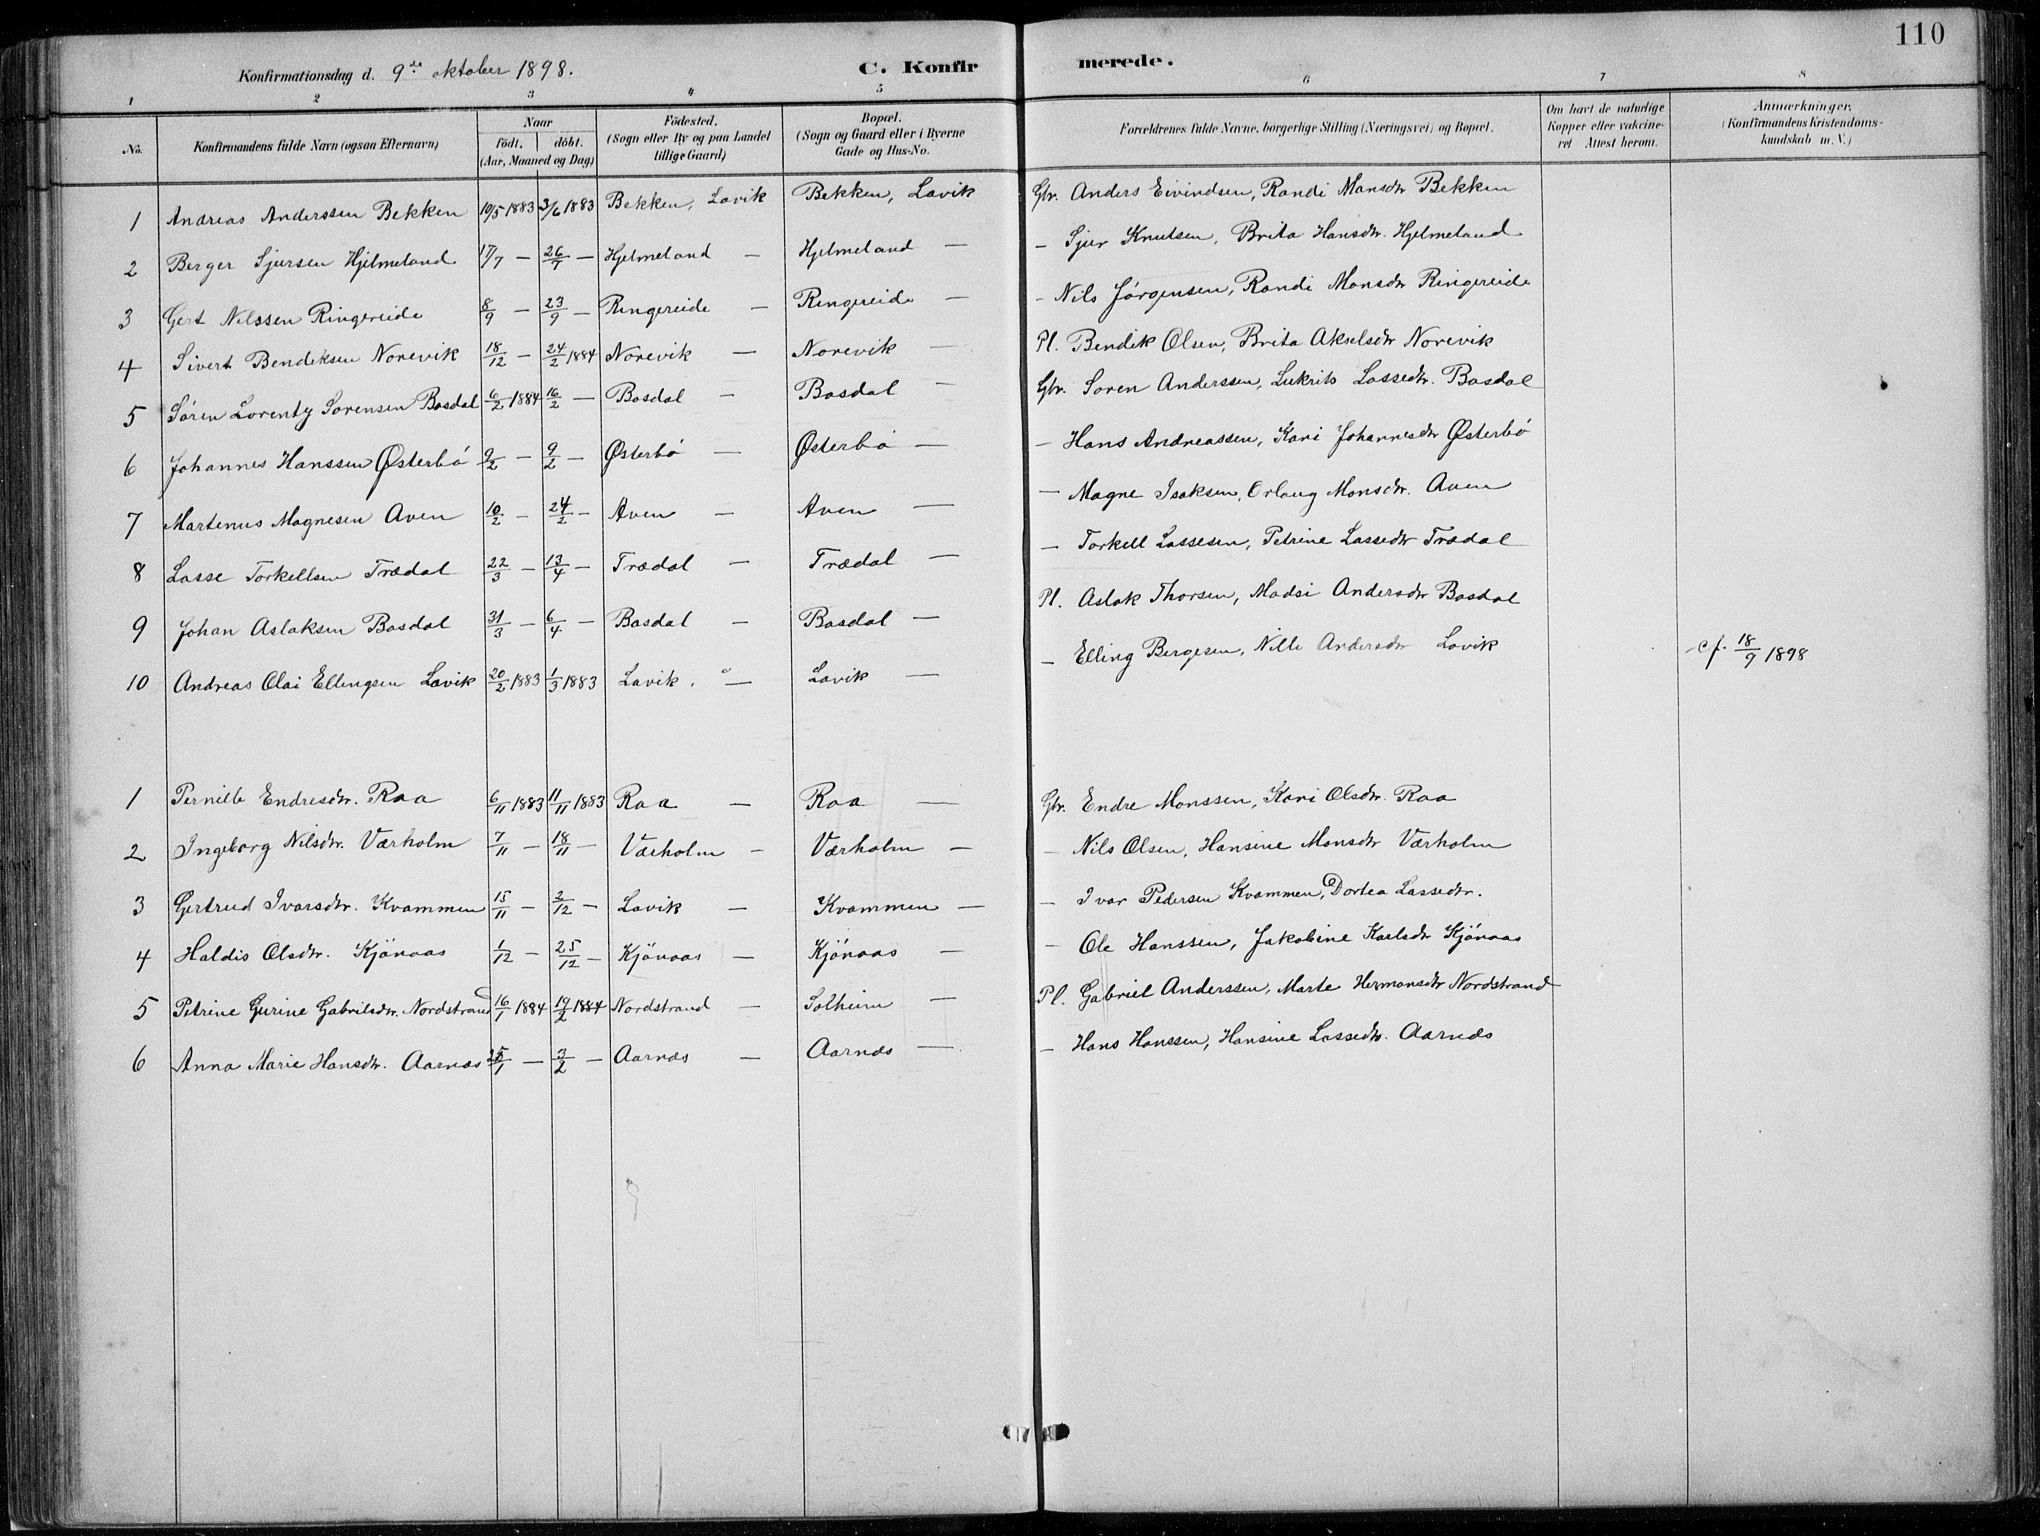 110
Konfirmationsdag d. 9de oktober 1898. C. Konfirmerede.
1 2 3 4 5 6 7 8
No. Konfirmandens fulde Navn (ogsaa Efternavn) Naar født. døbt. (Aar, Maaned og Dag) Fødested. (Sogn eller By og paa Landet tillige Gaard) Bopæl. (Sogn og Gaard eller i Byerne Gade og Hus-No. Forældrenes fulde Navne, borgerlige Stilling (Næringsvei) og Bopæl. Om havt de naturlige Kopper eller vakcineret Attest herom. Anmærkninger. (Konfirmandens Kristendomskundskab m. V.)
1 Andreas Anderssen Bekken 10/5 1883 3/6 1883 Bekken, Lavik Bekken, Lavik Gbr. Anders Eivindsen, Randi Mansdtr Bekken
2 Berger Sjursen Hjelmeland 17/7 — 26/7 — Hjelmeland — Hjelmeland — — Sjur Knutsen, Brita Hansdtr. Hjelmeland
3 Gert Nilssen Ringereide 8/9 — 23/9 — Ringereide — Ringereide — — Nils Jørgensen, Randi Monsdtr Ringereide
4 Sivert Bendiksen Norevik 18/12 — 24/2 1884 Norevik — Norevik — Pl. Bendik Olsen, Brita Akselsdtr Norevik
5 Søren Lorentz Sorensen Basdal 6/2 1884 16/2 — Basdal — Basdal — Gbr. Soren Anderssen, Lukrits Lassedtr. Basdal
6 Johannes Hanssen Østerbø 9/2 — 9/2 — Østerbø — Østerbø — — Hans Andreassen, Kari Johannesdtr Østerbø
7 Martenus Magnesen Aven 10/2 — 24/2 — Aven — Aven — — Magne Isaksen, Orlaug Monsdtr. Aven
8 Lasse Torkellsen Trædal 22/3 — 13/4 — Trædal — Trædal — — Torkell Lassesen, Petrine Lassedtr Trædal
9 Johan Aslaksen Basdal 31/3 — 6/4 — Basdal — Basdal — Pl. Aslak Thorsen, Madsi Andersdtr Basdal
10 Andreas Olai Ellingsen Lavik 20/2 1883 1/3 1883 Lavik. — Lavik — — Elling Bergesen, Nille Andersdtr Lavik cf. 18/9 1898
1 Pernille Endresdtr. Raa 6/11 1883 11/11 1883 Raa — Raa — Gbr. Endre Monssen, Kari Olsdtr. Raa
2 Ingeborg Nilsdtr. Værholm 7/11 — 18/11 — Værholm — Værholm — — Nils Olsen, Hansine Monsdtr Værholm
3 Gertrud Ivarsdtr. Kvammen 15/11 — 2/12 — Lavik — Kvammen — — Ivar Pedersen Kvammen, Dortea Lassedtr.
4 Haldis Olsdtr. Kjönaas 1/12 — 25/12 — Kjönaas — Kjönaas — — Ole Hanssen, Jakobine Karlsdtr Kjönaas
5 Petrine Gurine Gabrilsdtr. Nordstrand 16/1 1884 19/2 1884 Nordstrand — Solheim — Pl. Gabriel Anderssen, Marte Hermansdtr Nordstrand
6 Anna Marie Hansdtr. Aarnæs 25/1 — 3/2 — Aarnæs — Aarnæs — — Hans Hanssen, Hansine Lassedtr. Aarnæs